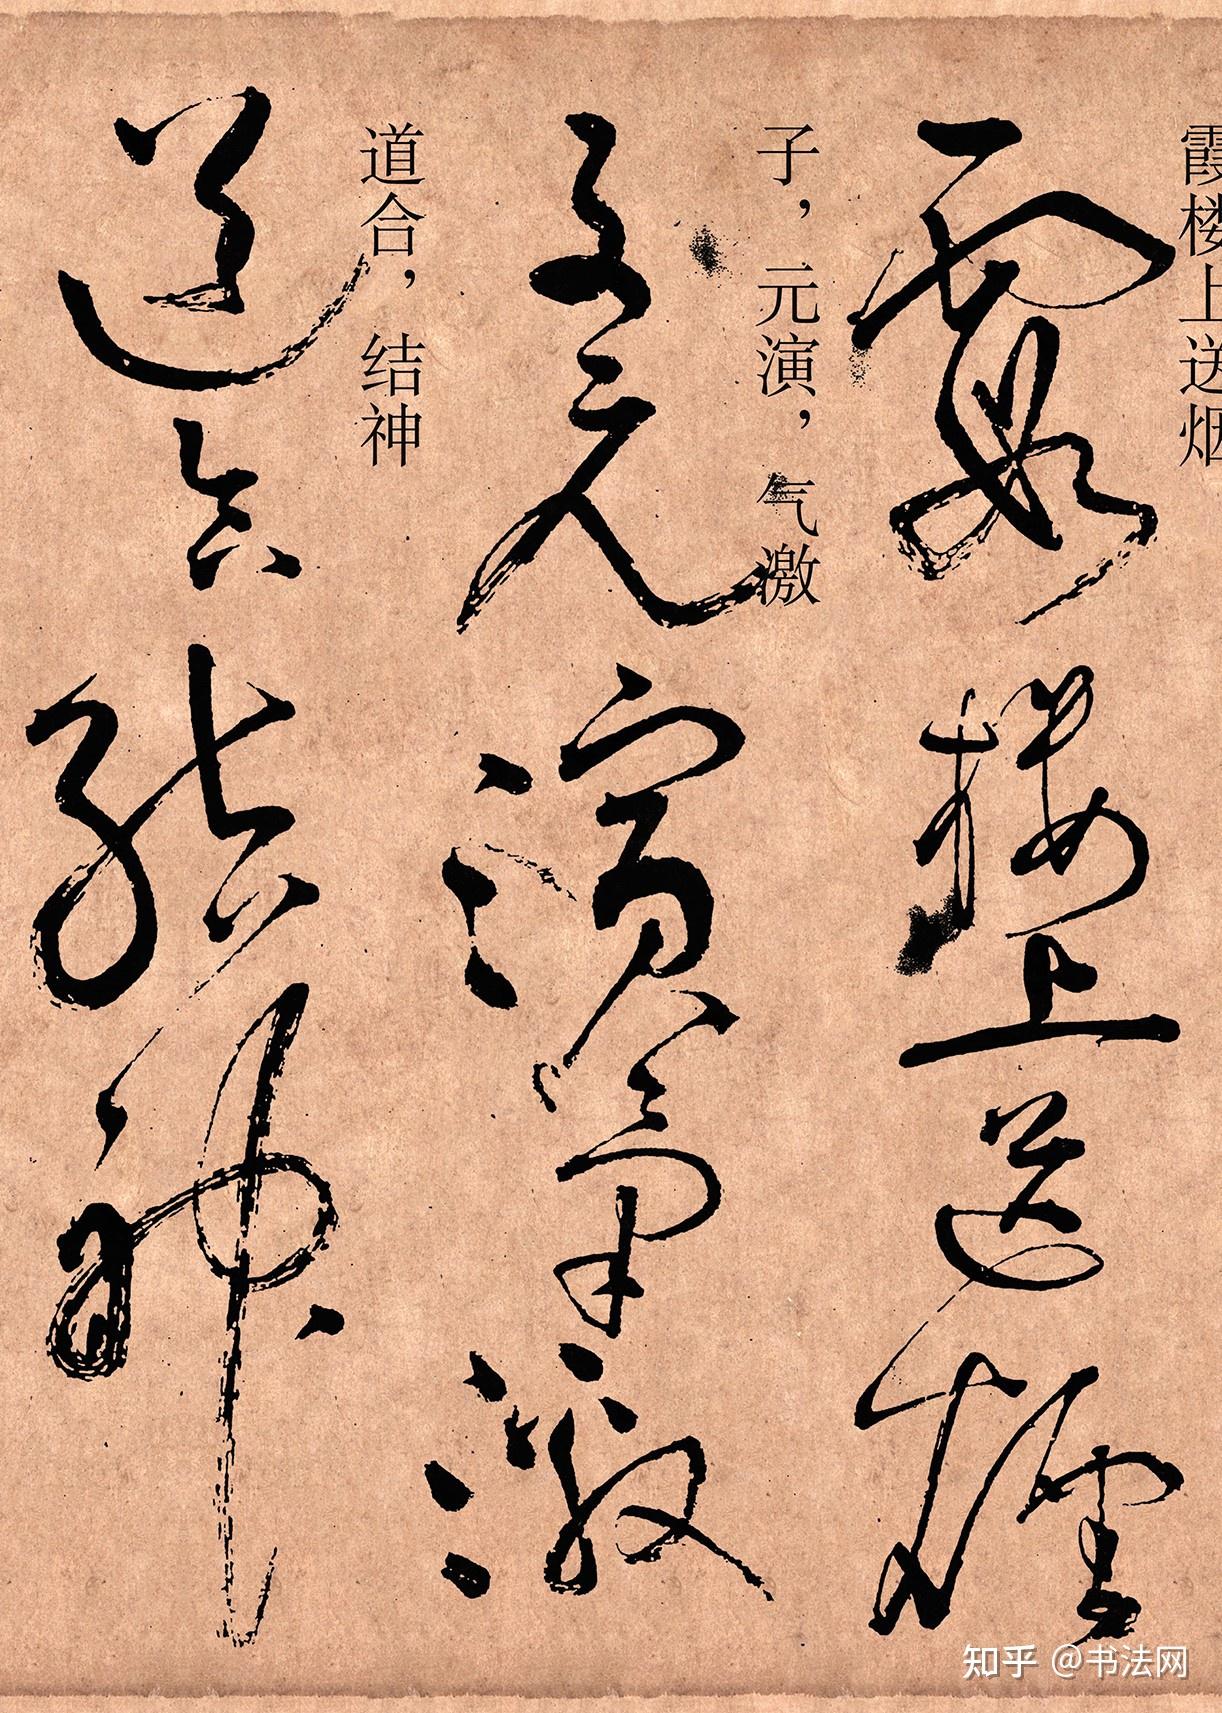 霞楼上送烟
霞樓上送煙
子，元演，气激
子元演氣激
道合，结神
道合結神
知乎 @书法网